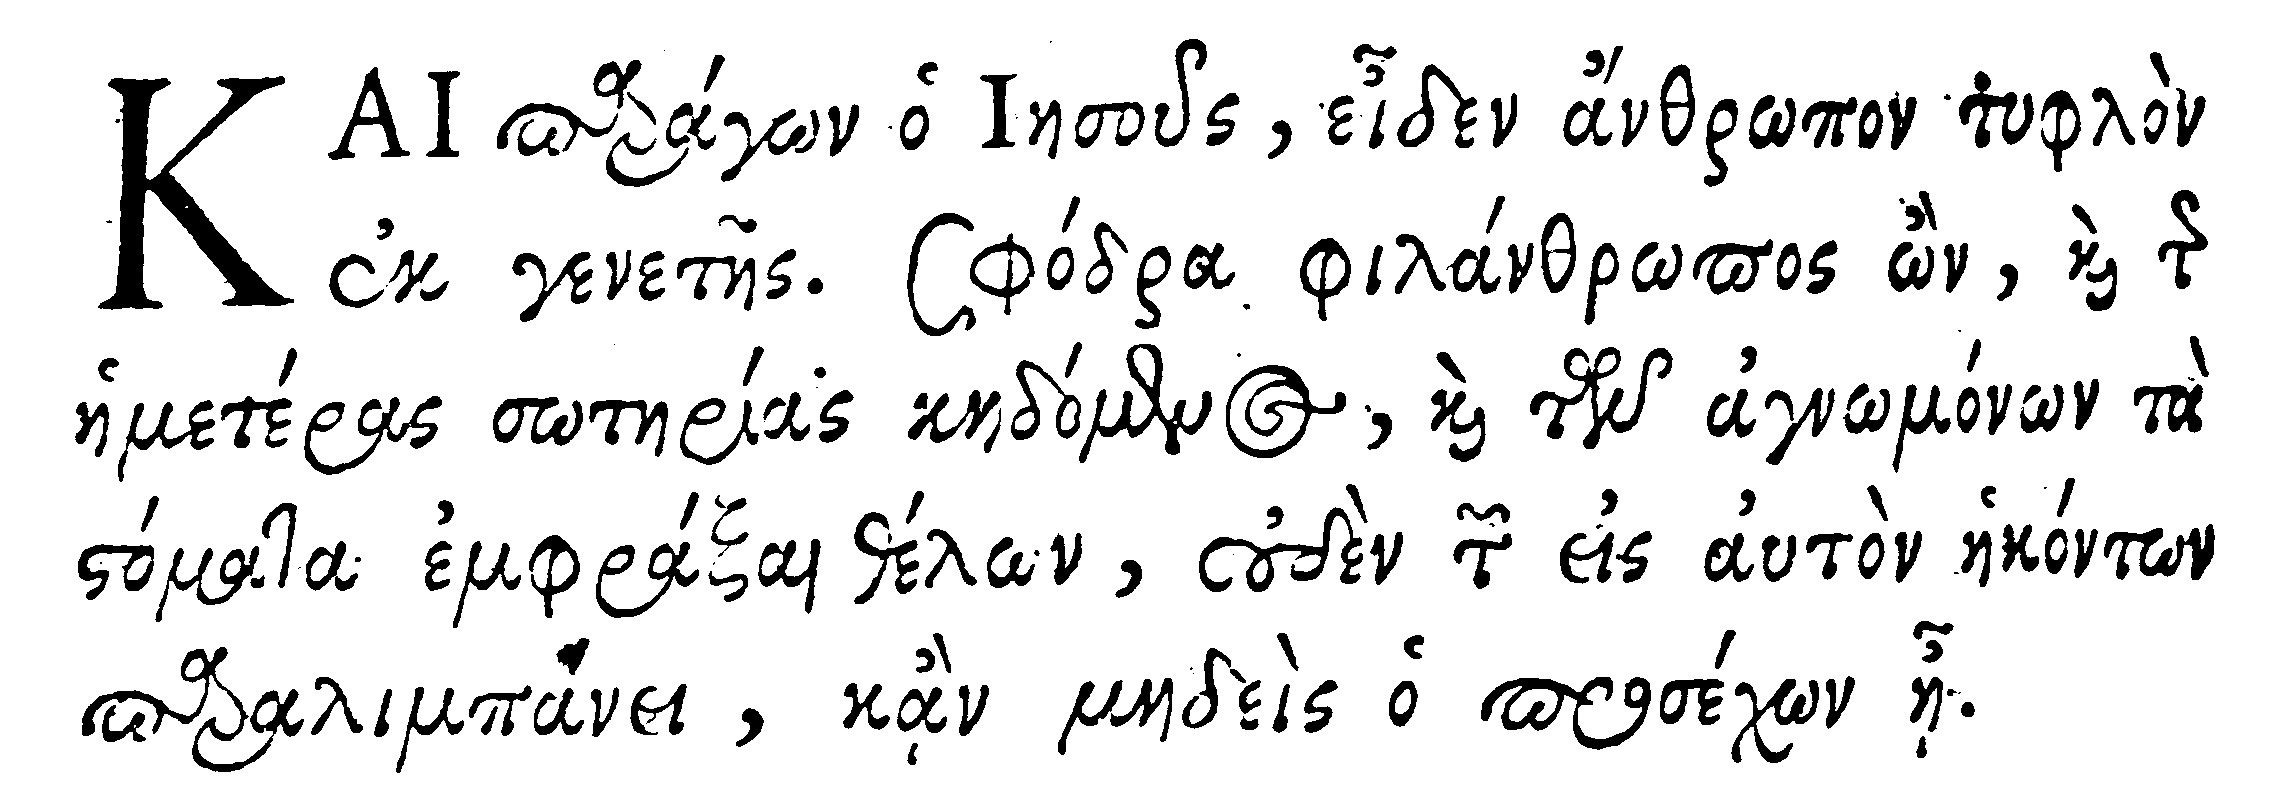 ΚΑΙ παράγων ὁ Ιησοῦς, εἶδεν ἄνθρωπον τυφλὸν
ἐκ γενετῆς. Σφόδρα φιλάνθρωπος ὢν, καὶ τῆς
ἡμετέρας σωτηρίας κηδόμενος, καὶ τῶν ἀγνωμόνων τὰ
στόματα ἐμφράξαι θέλων, οὐδὲν τῶν εἰς αὐτὸν ἡκόντων
παραλιμπάνει, κᾂν μηδεὶς ὁ προσέχων ᾖ.